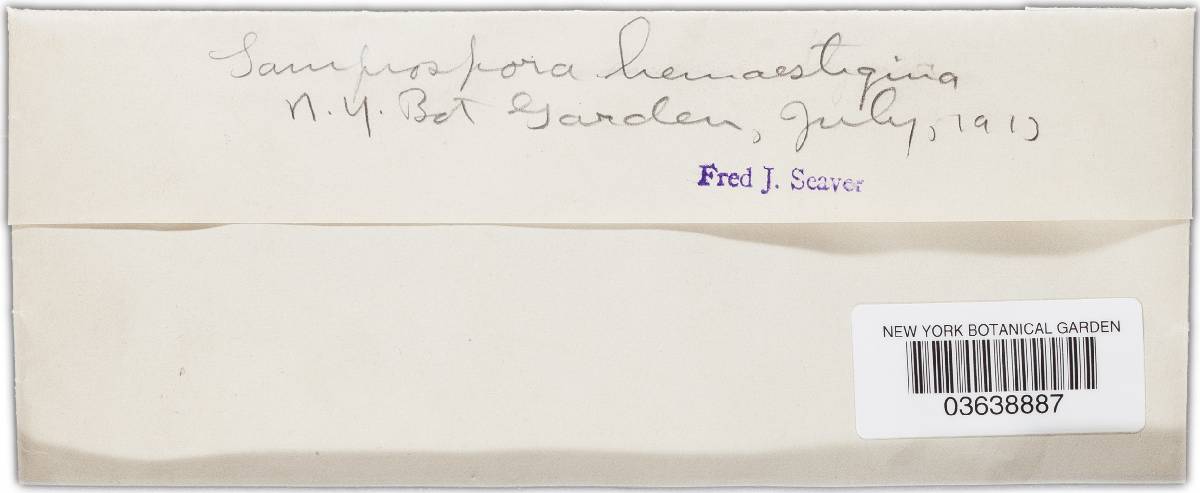 Lamprospora hemaestigma
N. Y. Bot Garden, July, 1913
Fred J. Seaver
NEW YORK BOTANICAL GARDEN
03638887